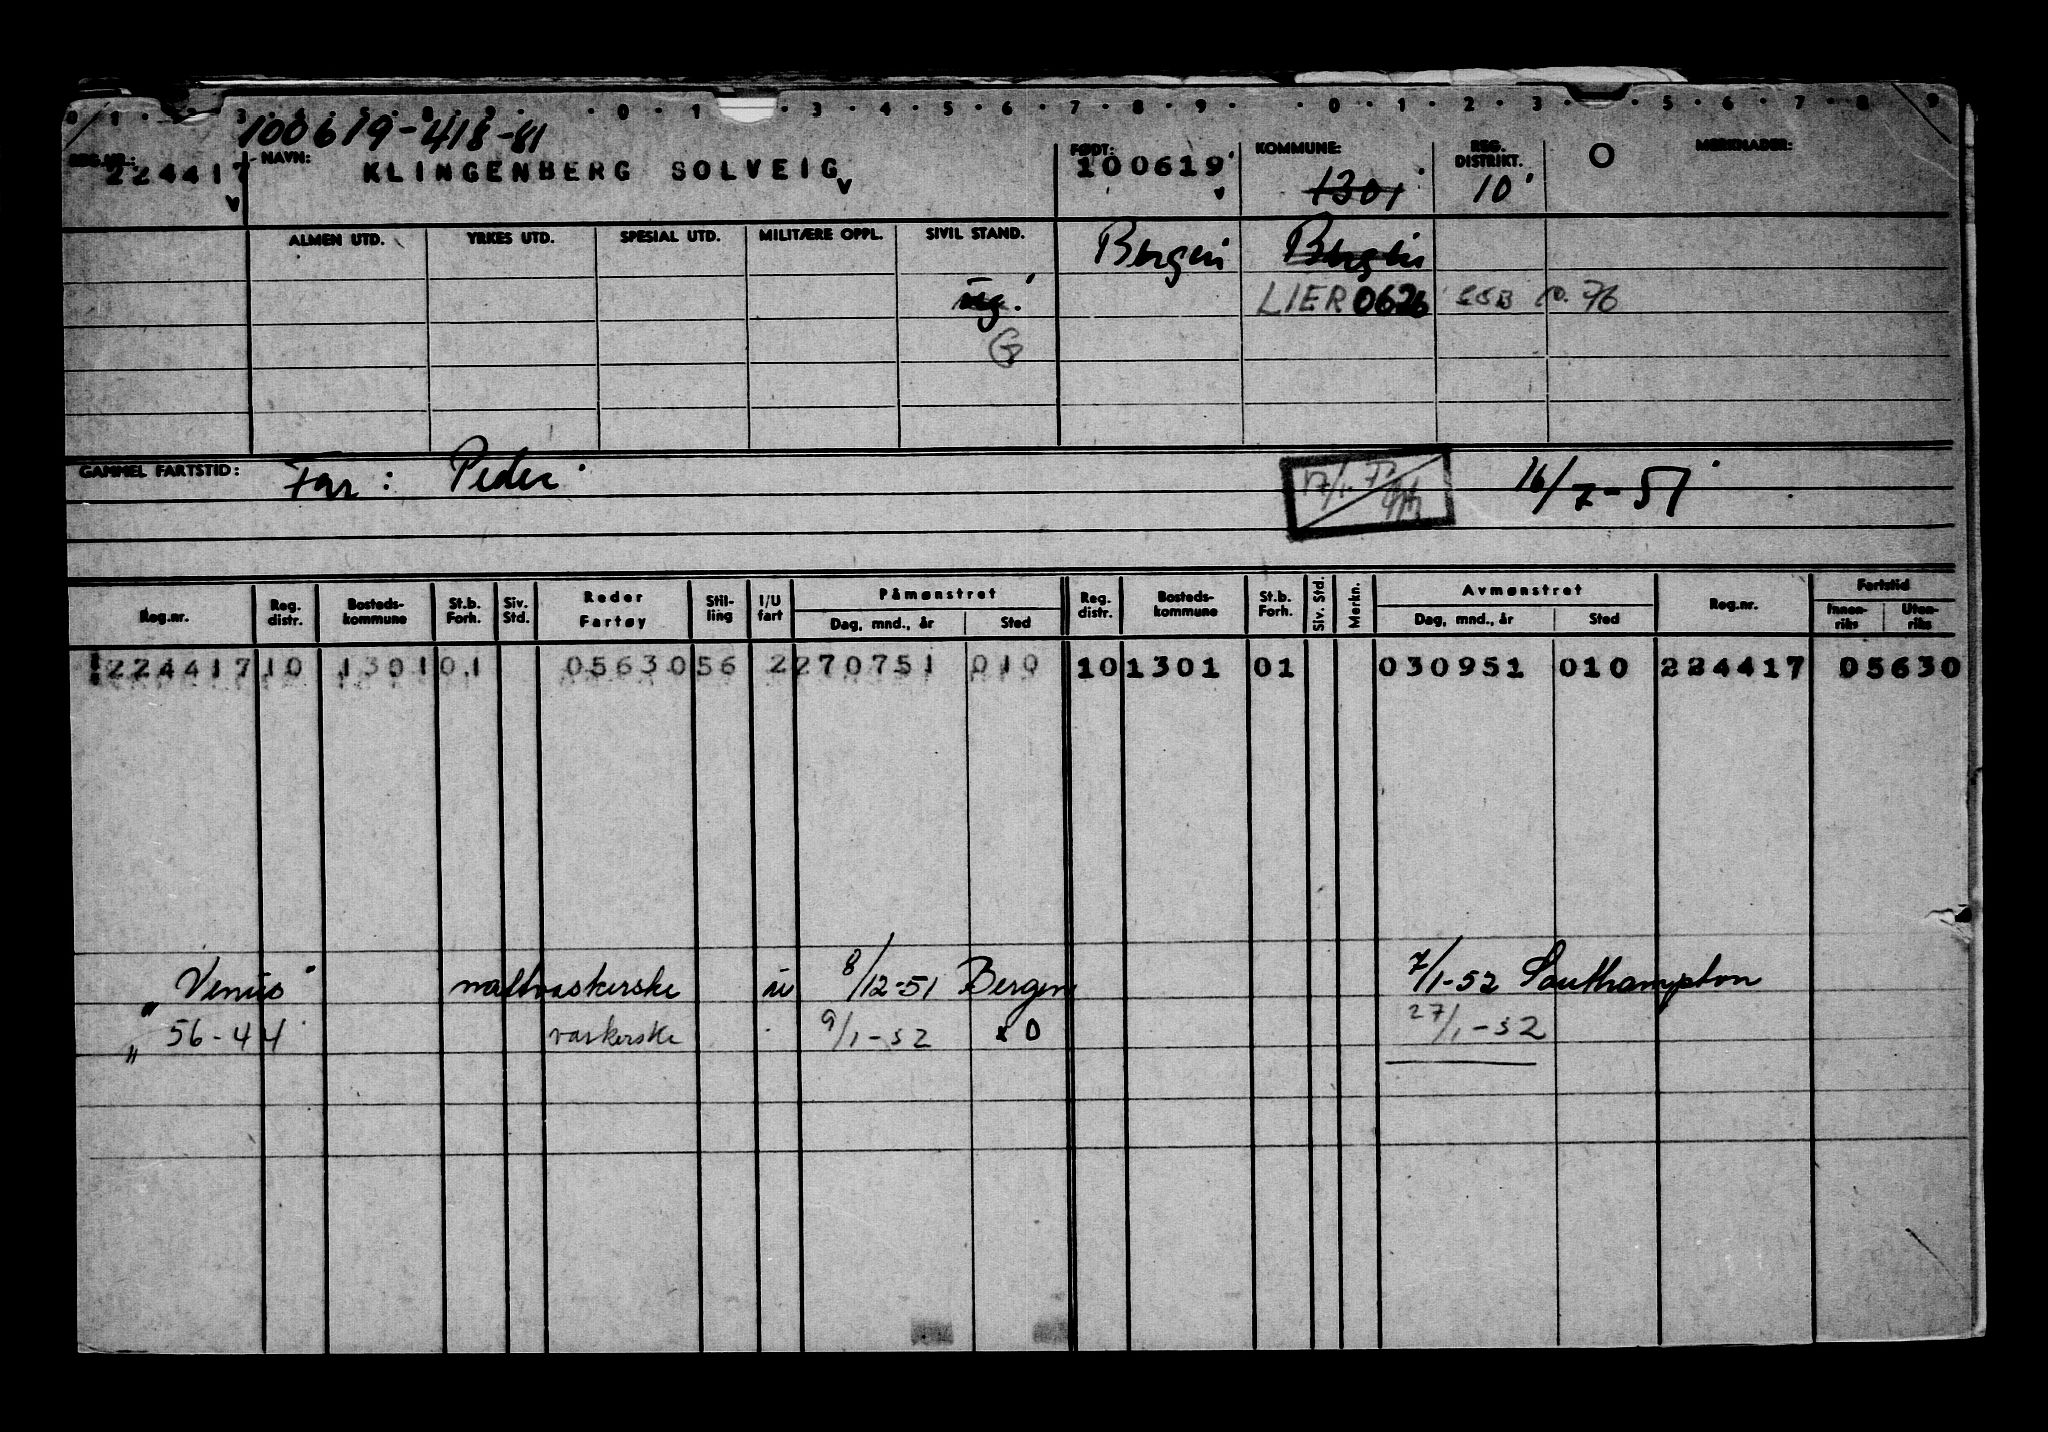 0 1 3 0 1 3 4 5 6 7 8 9 0 1 2 3 5 6 7 8 9
100619-418-81
REG.NR.: 224417 NAVN: KLINGENBERG SOLVEIG FØDT: 100619 KOMMUNE: 1301 REG. DISTRIKT. 10 O MERKNADER:
ALMEN UTD. YRKES UTD. SPESIAL UTD. MILITÆRE OPPL. SIVIL STAND. Bergen Bergen
ug. LIER 0626 76
G
GAMMEL FARTSTID: Far: Peder 17/1.77 16/7-51
Reg.nr. Reg. distr. Bosteds-kommune St.b. Forh. Siv. Std. Reder Fartøy Stil-ling I/U fart Påmønstret Dag, mnd., år Sted Reg. distr. Bosteds-kommune St.b. Forh. Siv. Std. Merkn. Avmønstret Dag, mnd., år Sted Reg.nr. Fartstid Innen-riks Uten-riks
224417 10 1301 01 05630 56 2 270751 010 10 1301 01 030951 010 224417 05630
"Venus" nattvaskerske u 8/12-51 Bergen 7/1-52 Southampton
" 56-44 vaskerske 9/1-52 x0 27/1-52